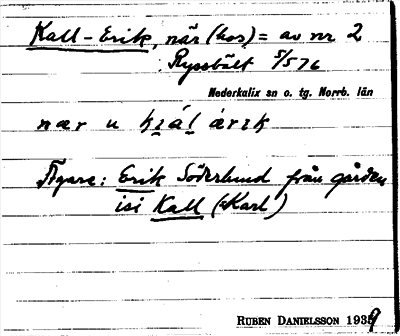 Kall-Erik, när (hos) = av nr 2
Ryssbält 5/5 76
Nederkalix sn o. tg. Norrb. län
nær u
Ägare: Erik Söderlund från gården
isi Kall (Karl)
RUBEN DANIELSSON 1939